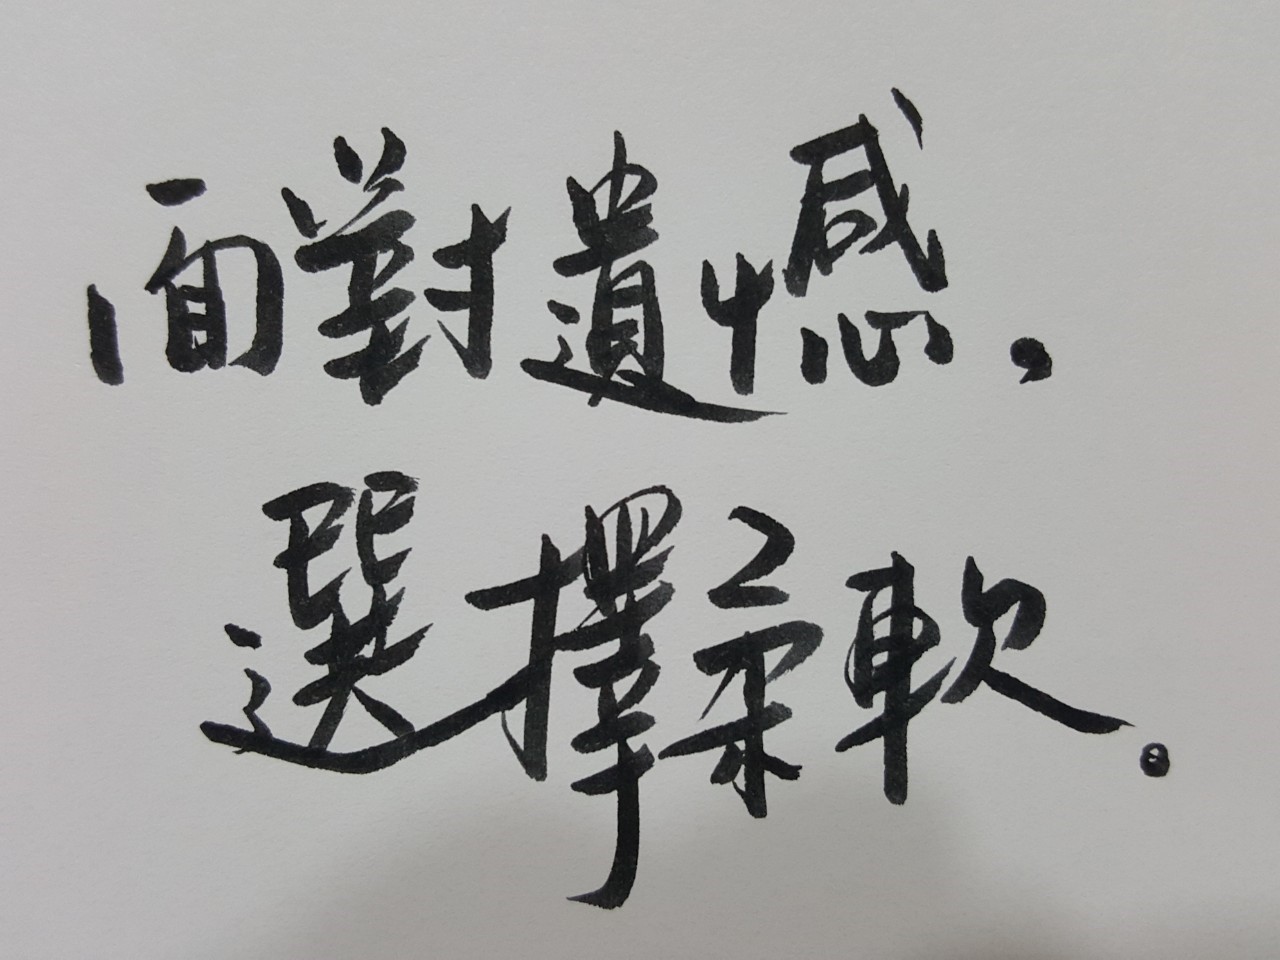 面對遺憾，
選擇柔軟。